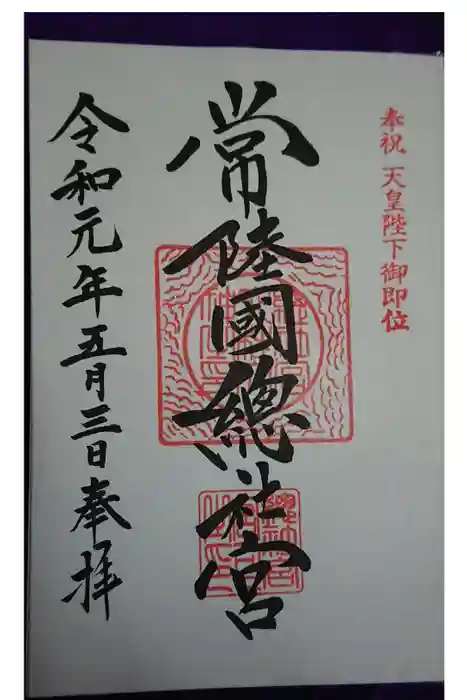 奉祝 天皇陛下御即位
常陸國總社宮
令和元年五月三日奉拝